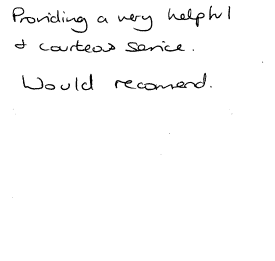 Providing a very helpful
& courteous service.
Would recomend.